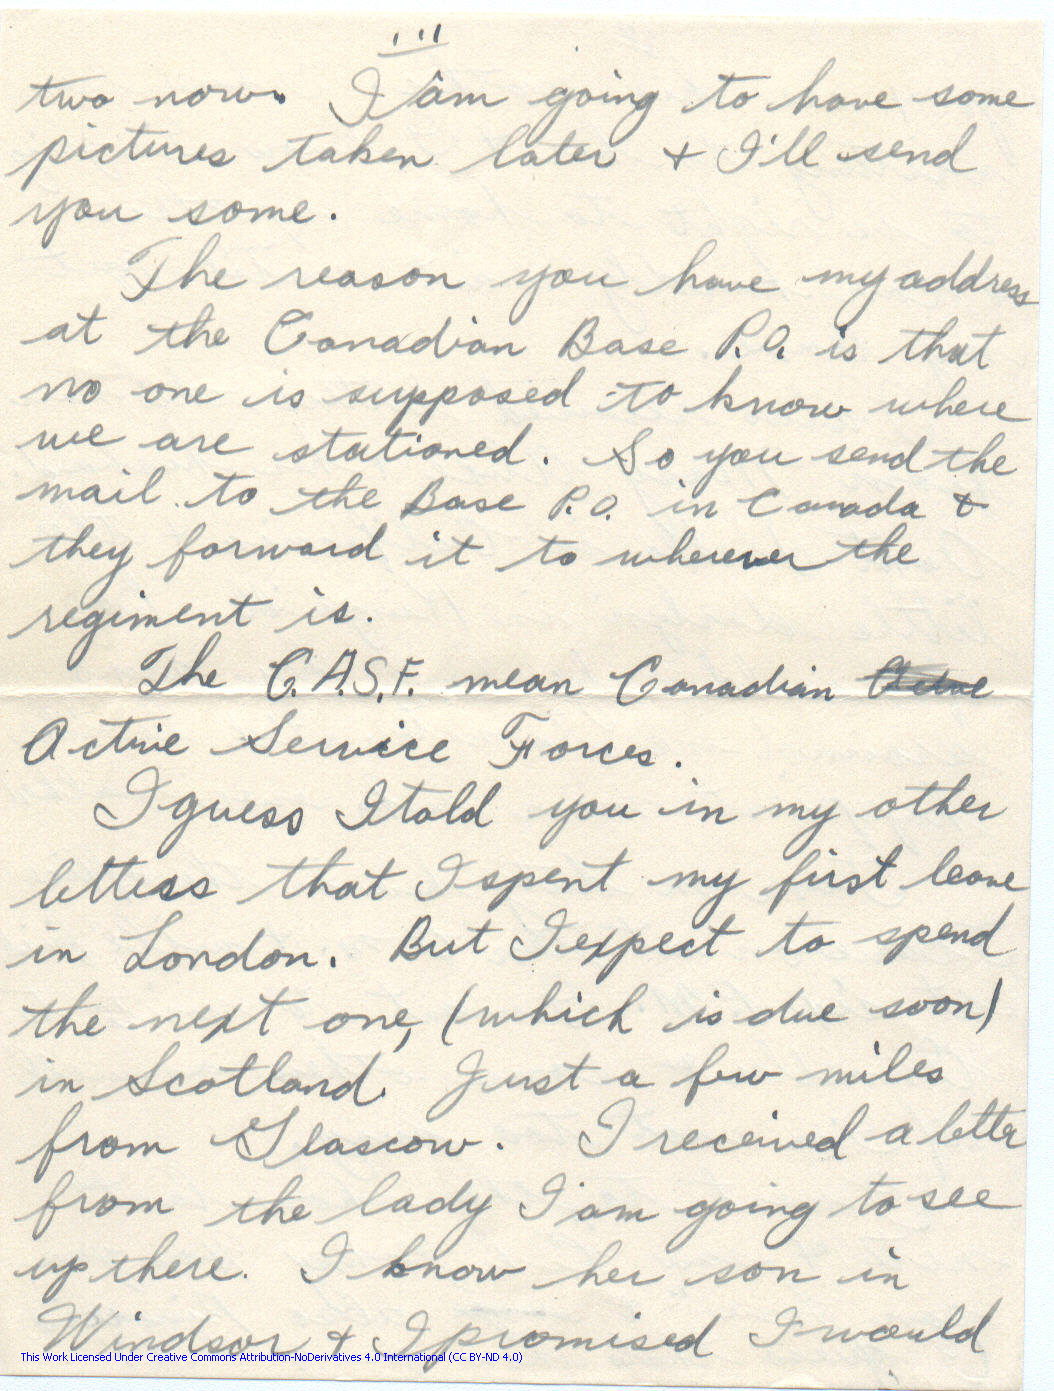 III
two now. I am going to have some
pictures taken later + I'll send
you some.
The reason you have my address
at the Canadian Base P.O. is that
no one is supposed to know where
we are stationed. So you send the
mail to the Base P.O. in Canada +
they forward it to wherever the
regiment is.
The C.A.S.F. mean Canadian Active
Active Service Forces.
I guess I told you in my other
letters that I spent my first leave
in London. But I expect to spend
the next one, (which is due soon)
in Scotland. Just a few miles
from Glascow. I received a letter
from the lady I am going to see
up there. I know her son in
Windsor + I promised I would
This Work Licensed Under Creative Commons Attribution-NoDerivatives 4.0 International (CC BY-ND 4.0)